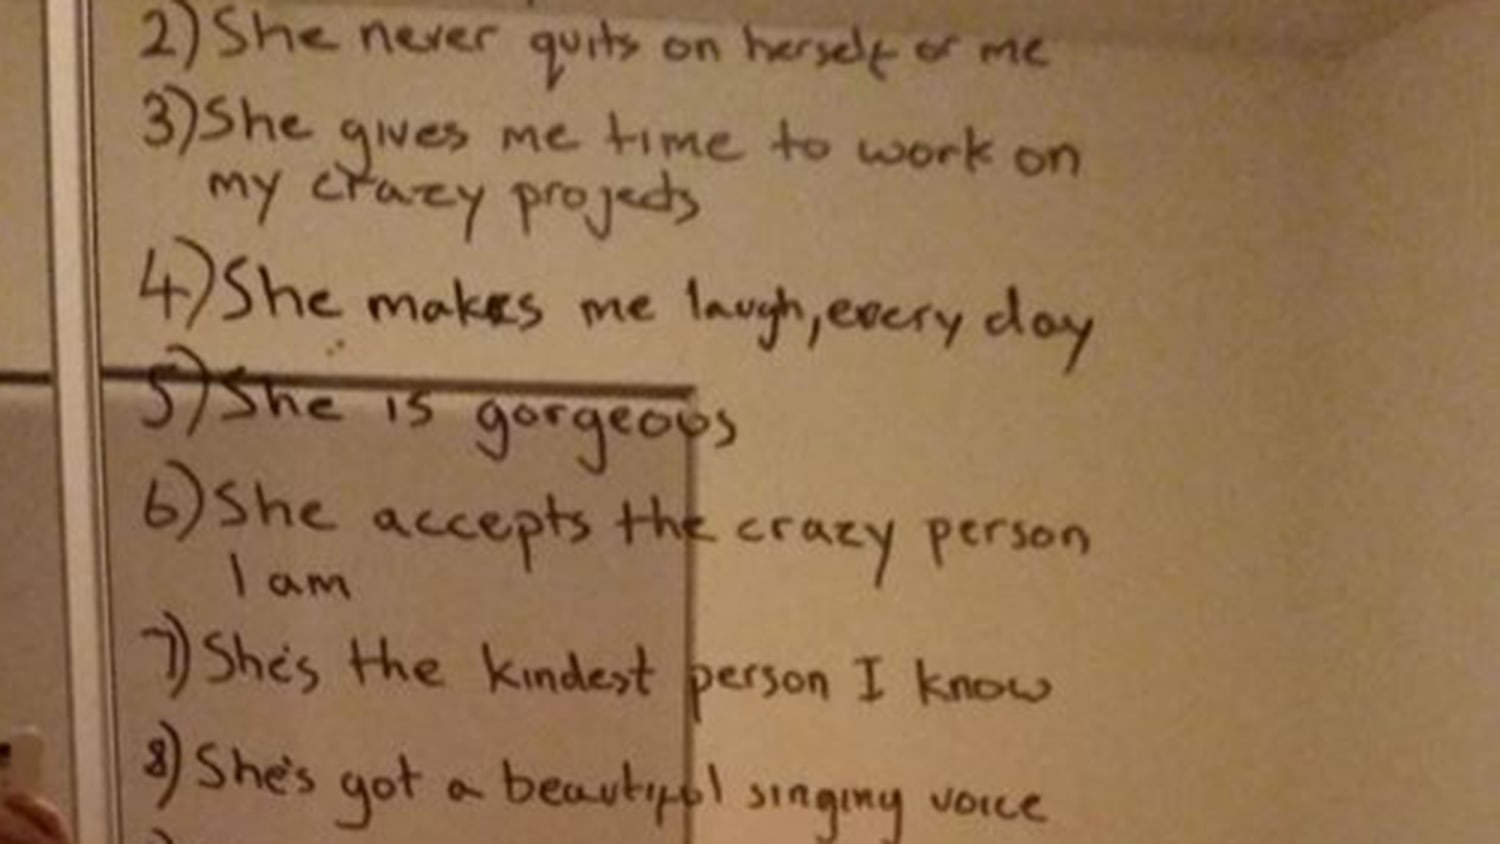 2) She never quits on herself or me
3) She gives me time to work on
my crazy projects
4) She makes me laugh, every day
5) She is gorgeous
6) She accepts the crazy person
I am
7) She's the kindest person I know
8) She's got a beautiful singing voice